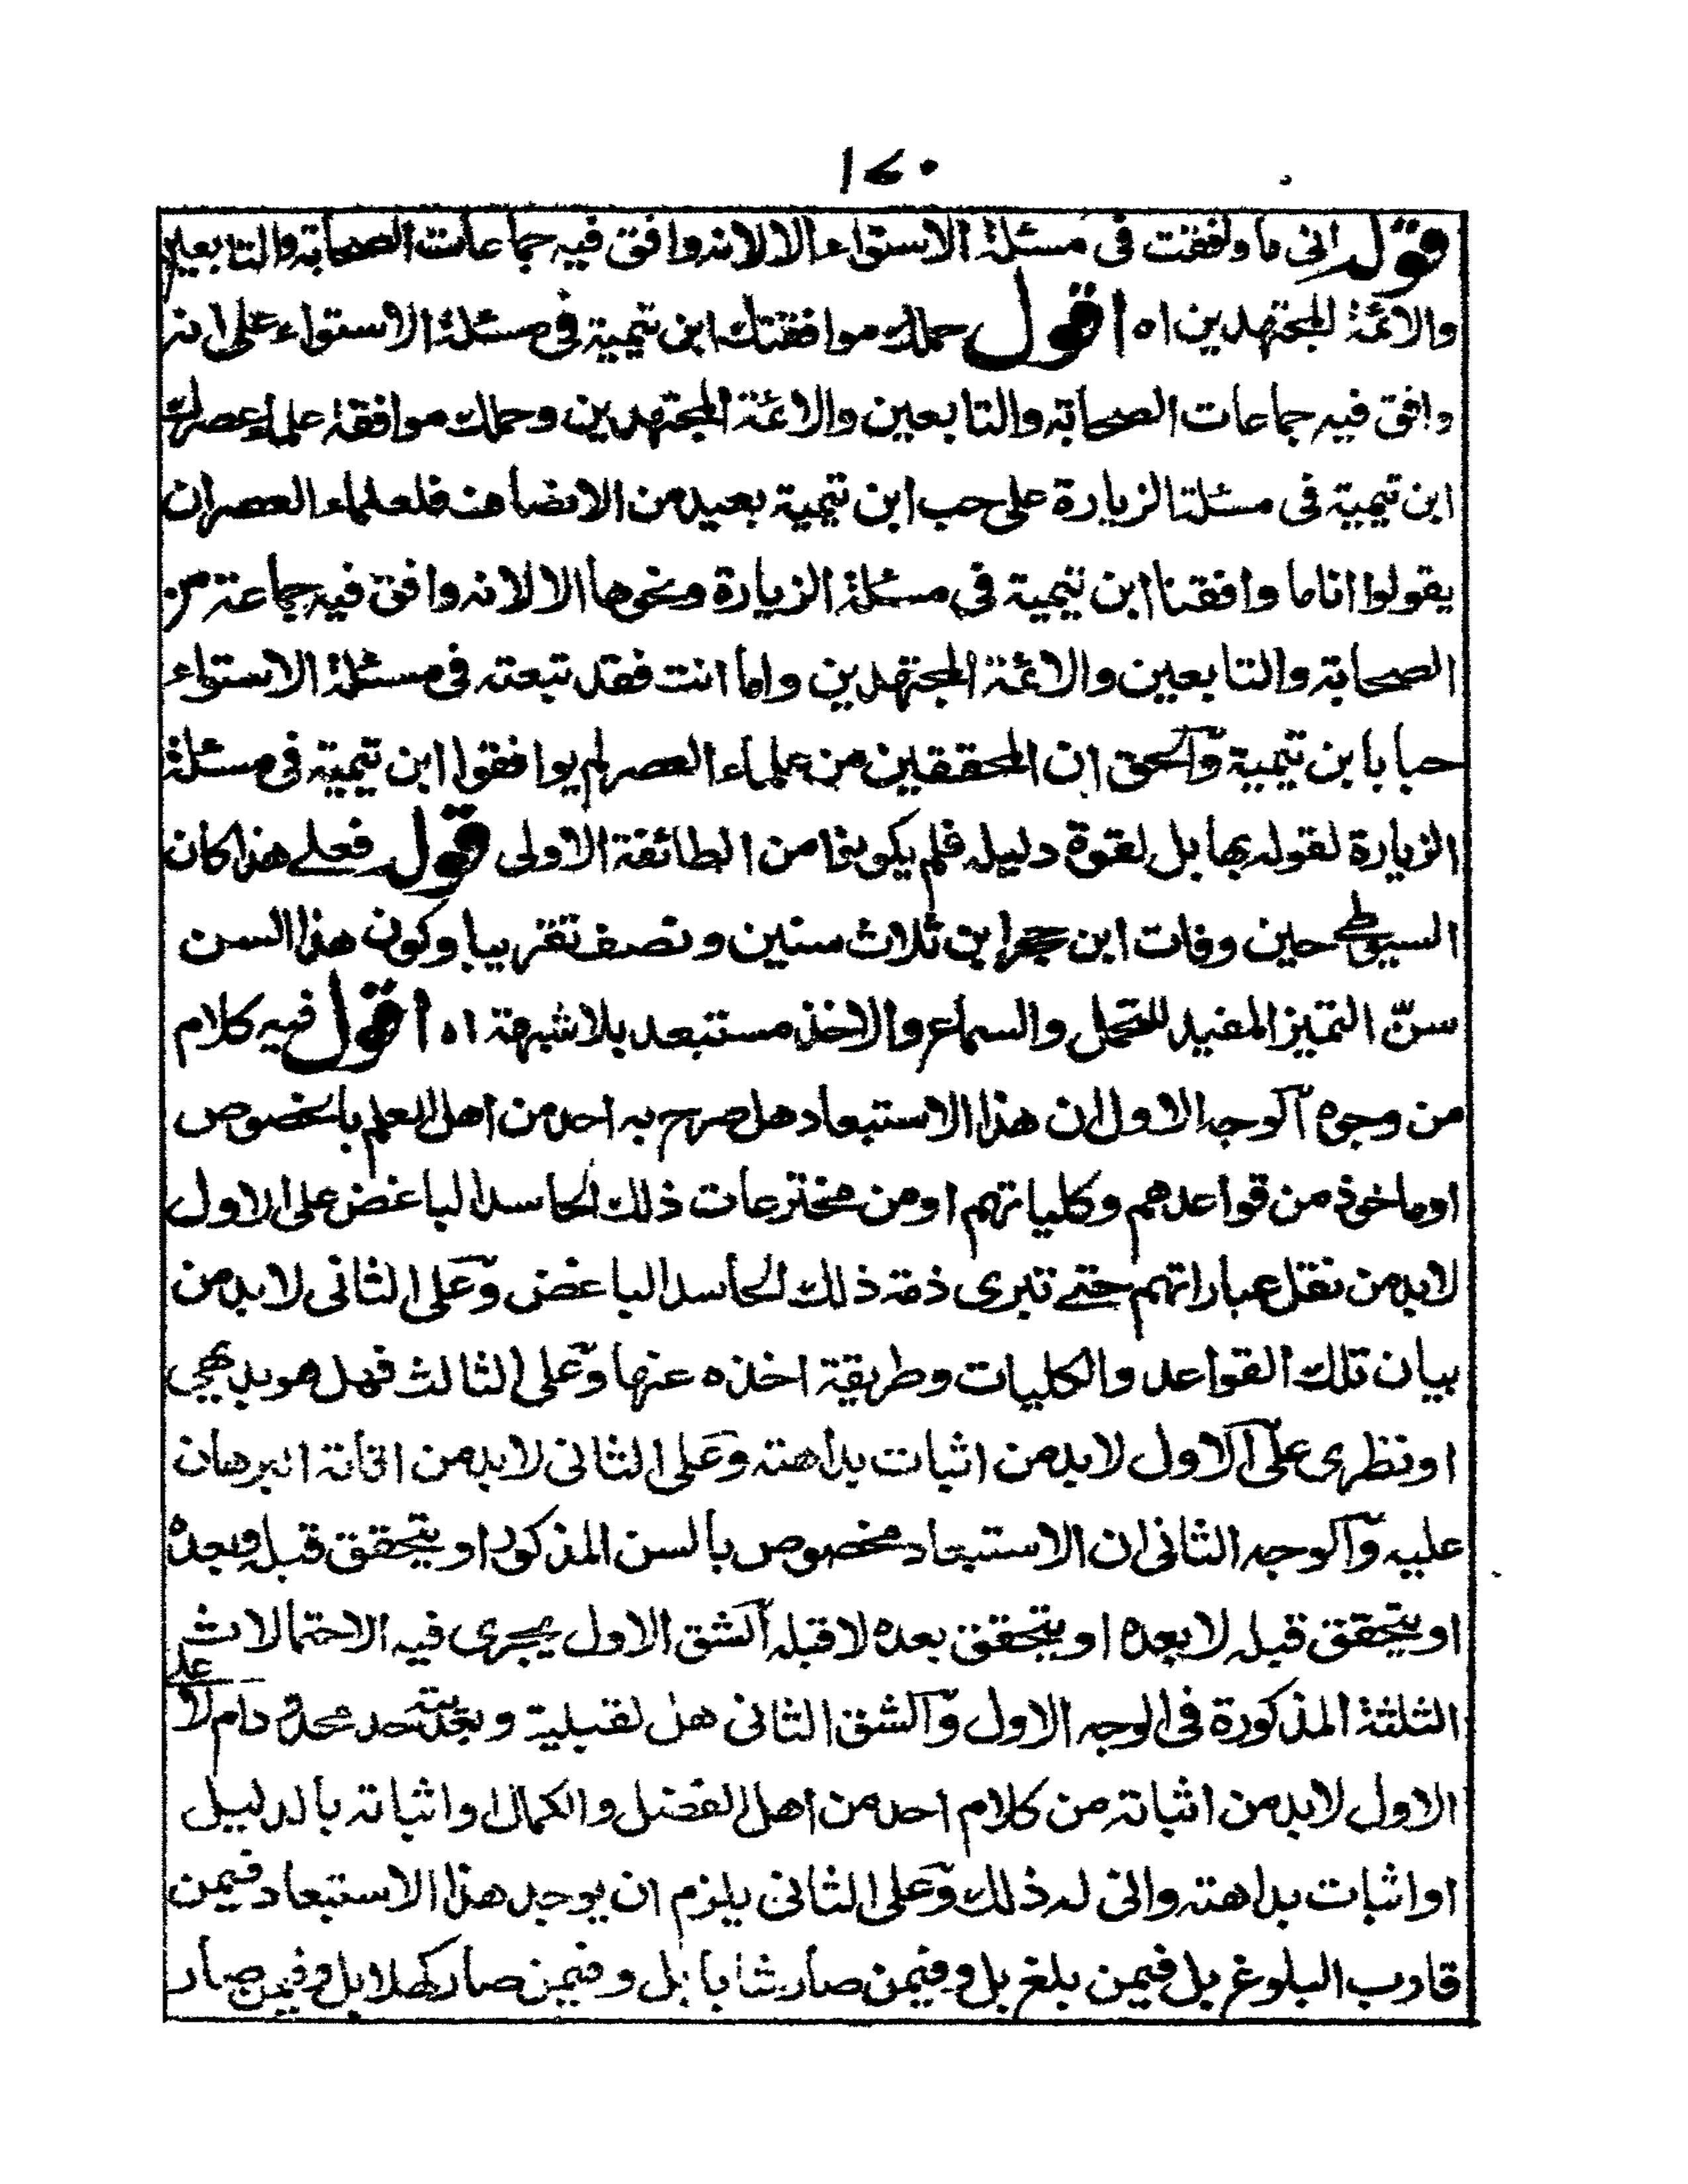 ١٤٠
قوله انى ما وافقت فى مسئلة الاستواء الا لانه وافق فيه جماعات الصحابة والتابعين
والائمة المجتهدين اه اقول حملك موافقتك ابن تيمية فى مسئلة الاستواء على انه
وافق فيه جماعات الصحابة والتابعين والائمة المجتهدين وحملك موافقة علماء عصرك
ابن تيمية فى مسئلة الزيارة على حب ابن تيمية بعيد من الانصاف فلعلماء العصر ان
يقولوا انا ما وافقنا ابن تيمية فى مسئلة الزيارة ونحوها الا لانه وافق فيه جماعة من
الصحابة والتابعين والائمة المجتهدين واما انت فقد تبعته فى مسئلة الاستواء
حبا بابن تيمية والحق ان المحققين من علماء العصر لم يوافقوا ابن تيمية فى مسئلة
الزيارة لقوله بها بل لقوة دليله فلم يكونوا من الطائفة الاولى قوله فعلے هذا كان
السيوطے حين وفات ابن حجر ابن ثلاث سنين ونصف تقريبا وكون هذا السن
سنّ التميز المفيد للتحمل والسماع والاخذ مستبعد بلا شبهة اه اقول فيه كلام
من وجوه الوجه الاول ان هذا الاستبعاد هل صرح به احد من اهل العلم بالخصوص
او ماخوذ من قواعدهم وكلياتهم او من مخترعات ذلك الحاسد الباغض على الاول
لابد من نقل عباراتهم حتے تبرى ذمة ذلك الحاسد الباغض وعلى الثانى لابد من
بيان تلك القواعد والكليات وطريقة اخذه عنها وعلى الثالث فهل هو بديهى
او نظرى على الاول لابد من اثبات بداهته وعلى الثانى لابد من اقامة البرهان
عليه والوجه الثانى ان الاستبعاد مخصوص بالسن المذكور او يتحقق قبله وبعده
او يتحقق قبله لا بعده او يتحقق بعده لا قبله الشق الاول يجرى فيه الاحتمالات
الثلثة المذكورة فى الوجه الاول والشق الثانى هل لقبلية وبعديته حد محدود ام لا على
الاول لابد من اثباته من كلام احد من اهل الفضل والكمال او اثباته بالدليل
او اثبات بداهته وانى له ذلك وعلى الثانى يلزم ان يوجد هذا الاستبعاد فيمن
قارب البلوغ بل فيمن بلغ بل وفيمن صار شابا بل وفيمن صار كهلا بل وفيمن صار